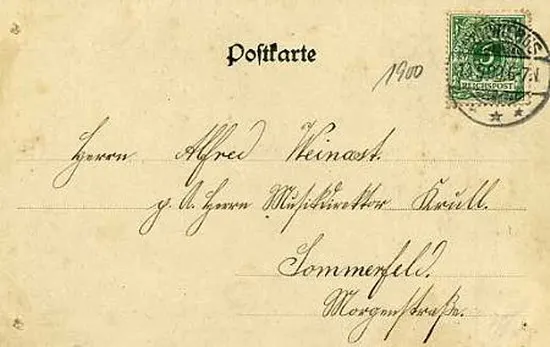 Postkarte
1900
5
REICHSPOST
6-7N
Herrn Alfred Weinast.
p. A. Herrn Musikdirektor Krull.
Sommerfeld.
Morgenstraße.